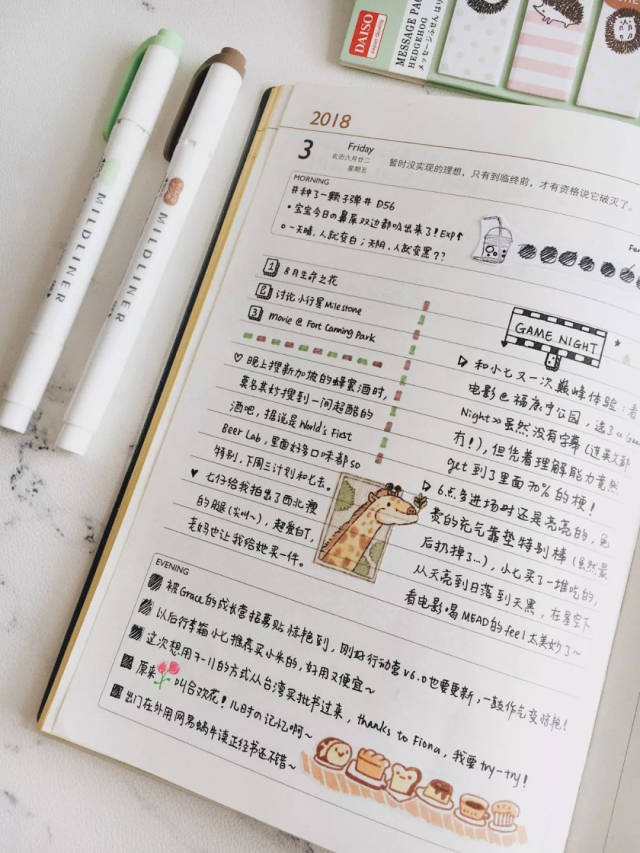 MILDLINER
MILDLINER
DAISO
MESSAGE PA
HEDGEHOG
メッセージふせん はり
2018
3
Friday
农历六月廿二
星期五
暂时没实现的理想，只有到临终前，才有资格说它破灭了。
MORNING
#种了一颗子弹# D56
•宝宝今日の鼻屎双边都吸出来了！Exp↑
○一天晴，人就变白；天阴，人就变黑？？
1 8月生命之花
2 讨论小行星Milestone
3 movie @ Fort Canning Park
♡ 晚上搜新加坡的蜂蜜酒时，
莫名其妙搜到一间超酷的
酒吧，据说是World's First
Beer Lab，里面好多口味都so
特别，下周三计划和七去。
♥ 七仔给我拍出了西北
的风腿(尖叫~)，超爱白T，
老妈也让我给她买一件。
GAME NIGHT
和小七又一次巅峰体验：看
电影@福康宁公园，选了《Game
Night》虽然没有字幕(连英文都
冇！)，但凭着理解能力竟然
get到了里面70%的梗！
6点多进场时还是亮亮的，
贵的充气靠垫特别棒(虽然最
后扔掉了…)，小七买了一堆吃的，
从天亮到日落到天黑，在星空下
看电影喝MEAD的feel太美妙了~
EVENING
被Grace的成长营招募贴惊艳到，刚好行动营v6.0也要更新，一鼓作气变惊艳！
以后行李箱小七推荐买小米的，好用又便宜~
这次想用7-11的方式从台湾买批书过来，thanks to Fiona，我要try-try！
原来叫合欢花！儿时の记忆啊~
出门在外用网易蜗牛读正经书还不错~